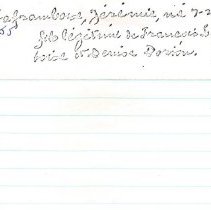 Laframboise, Jérémie, né
fils légitime de François L
boise et Denise Dorion.